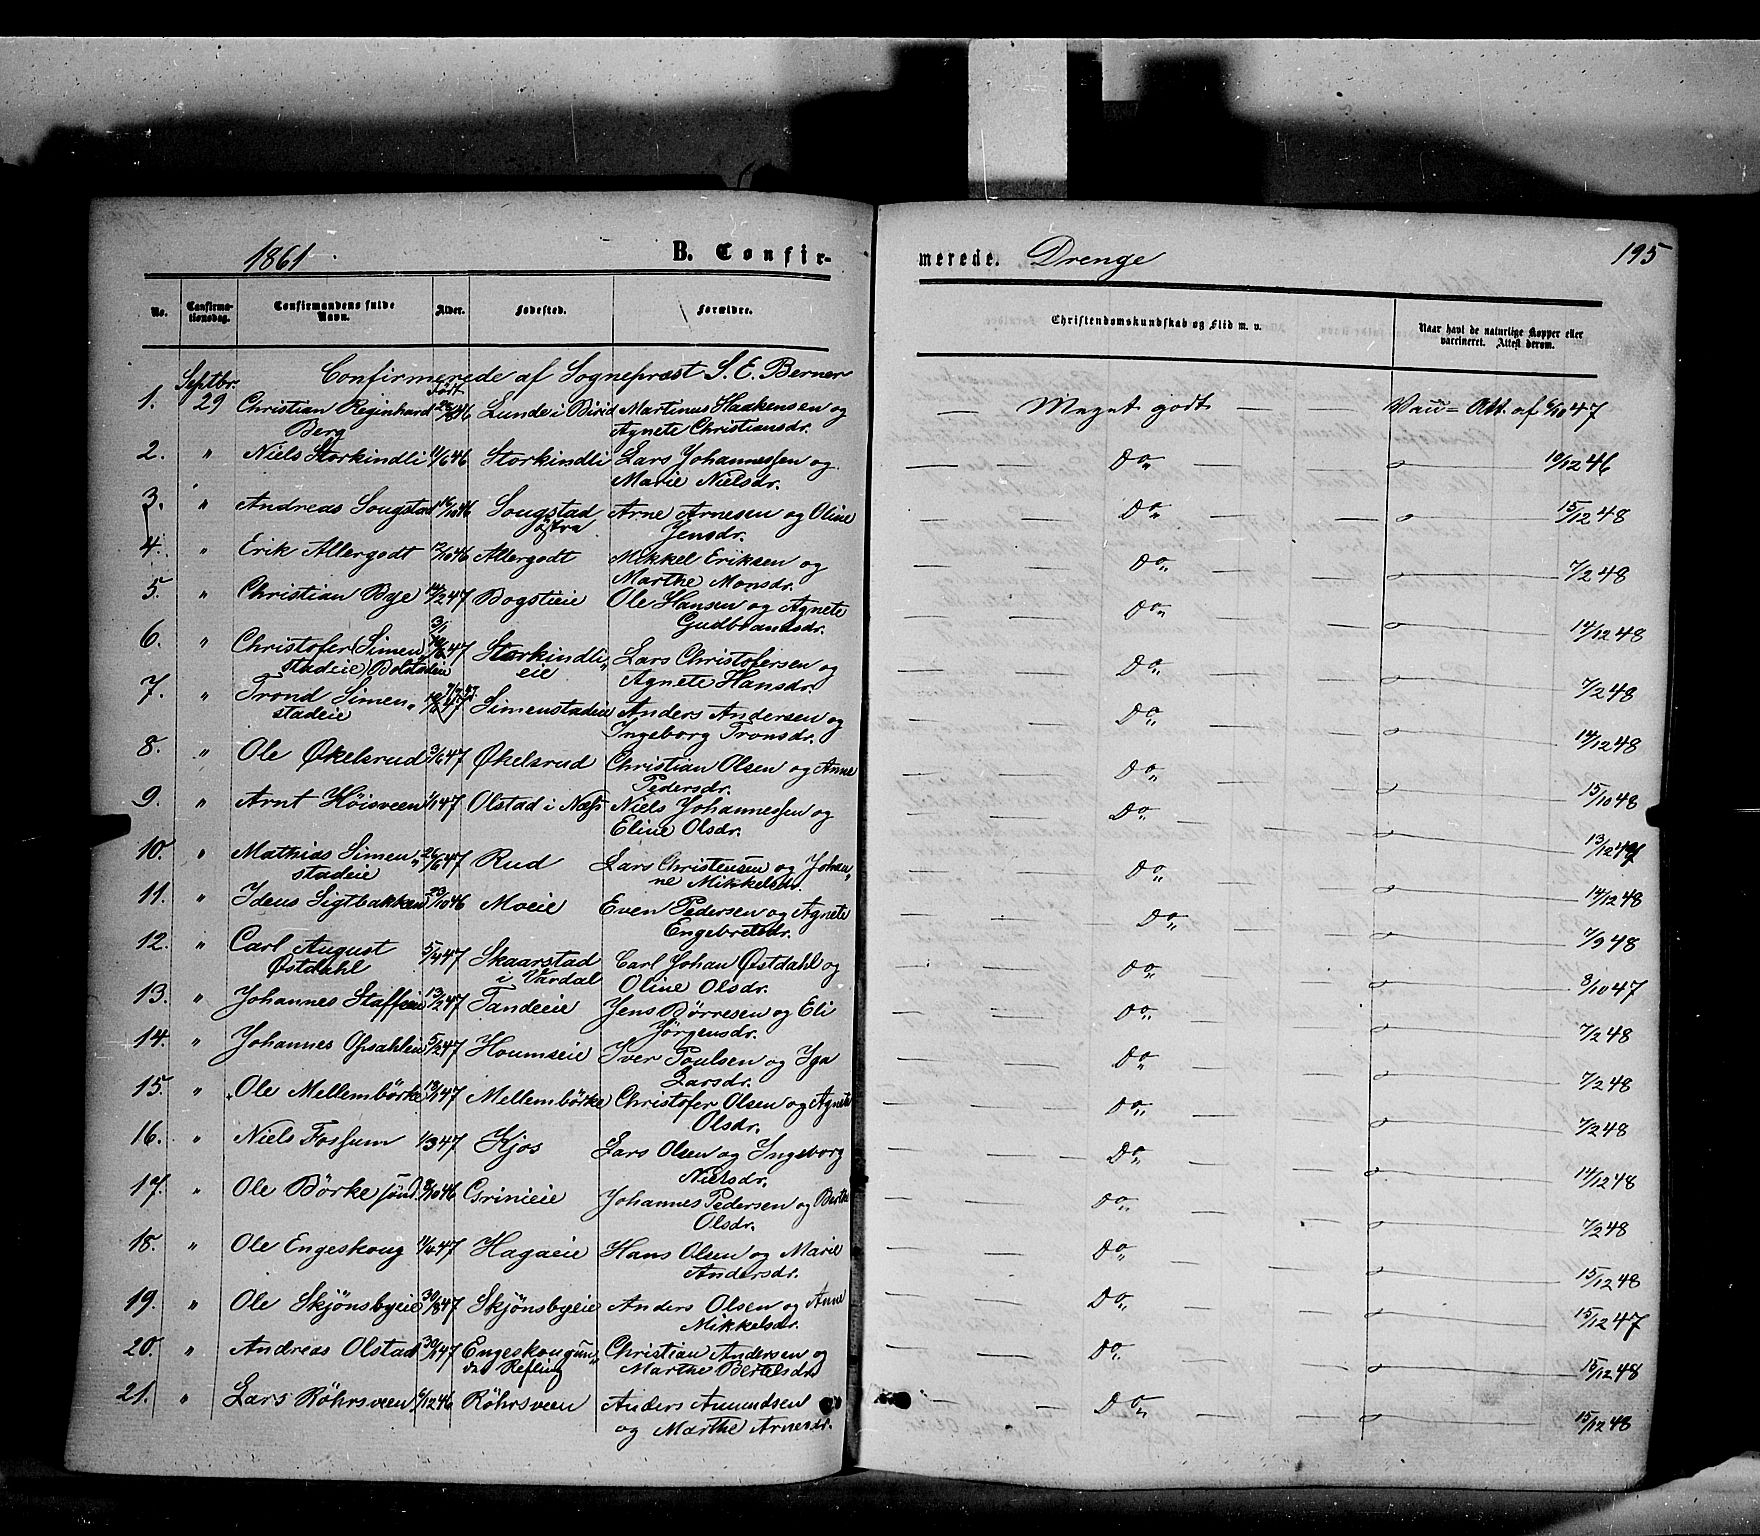 1861 B. Confir- merede. Drenge 195
No. Confirma-tionsdag. Confirmandens fulde Navn. Alder. Fødested. Forældre. Christendomskundskab og Flid m. v. Naar havt de naturlige Kopper eller vaccineret. Attest derom.
Septbr. Confirmerede af Sognepræst S. E. Berner
1. 29 Christian Reginhard født Lunde i Birid Martinus Haakensen og — Meget godt — — Vacc= Att. af 6/10 47
Berg Agnete Christiansdr.
2. " Niels Storkindli 11/6 46 Storkindli Lars Johannessen og — — Do — — 19/12 46
Marie Nielsdr.
3. " Andreas Sougstad 16/10 46 Sougstad Arne Arnesen og Oline — — Do — — 15/12 48
østra Jensdr.
4. " Erik Allergodt 12/10 46 Allergodt Mikkel Eriksen og — — Do — — 7/2 48
Marthe Monsdr.
5. " Christian Bye 14/2 47 Bogstieie Ole Hansen og Agnete — — Do — — 14/12 48
Gudbrandsdr.
6. " Christofer (Simen 47 Storkindli Lars Christofersen og — — Do — — 7/2 48
stadeie) Bolstadeie eie Agnete Hansdr.
7. " Trond Simen Simenstadeie Anders Andersen og — — Do — — 14/12 48
stadeie Ingeborg Tronsdr.
8. " Ole Økelsrud 3/6 47 Økelsrud Christian Olsen og Anne — — Do — — 15/10 48
Pedersdr.
9. " Arnt Høisveen 1/1 47 Olstad i Næs Niels Johannessen og — — Do — — 13/12 47
Eline Olsdr.
10. " Mathias Simen 26/6 47 Rud Lars Christensen og Johan — — Do — — 14/12 48
stadeie ne Mikkelsdr.
11. " Idens Sigtbakken 23/10 46 Moeie Even Pedersen og Agnete — — Do — — 7/9 48
Engebretsdr.
12. " Carl August 5/4 47 Skaarstad Carl Johan Østdahl og — — Do — — 8/10 47
Østdahl i Vardal Oline Olsdr.
13. " Johannes Staffeie 13/2 47 Tandeeie Jens Børresen og Eli — — Do — — 7/2 48
Jørgensdr.
14. " Johannes Opsahleie 5/2 47 Houmseie Iver Poulsen og Iga — — Do — — 7/2 48
Larsdr.
15. " Ole Mellembörke 13/1 47 Mellembörke Christofer Olsen og Agnete — — Do — — 7/2 48
Olsdr.
16. " Niels Fossum 1/3 47 Kjos Lars Olsen og Ingeborg — — Do — — 14/12 48
Nielsdr.
17. " Ole Börke sönd. 46 Grinieie Johannes Pedersen og Berthe — — Do — — 7/2 48
Olsdr.
18. " Ole Engeskoug 11/6 47 Hagaeie Hans Olsen og Marie — — Do — — 15/12 48
Andersdr.
19. " Ole Skjönsbyeie 30/8 47 Skjönsbyeie Anders Olsen og Anne — — Do — — 15/12 47
Mikkelsdr.
20. " Andreas Olstad 30/1 47 Engeskougun Christian Andersen og — — Do — — 15/12 48
der Refling Marthe Bertelsdr.
21. " Lars Röhrsveen 6/12 46 Röhrsveen Anders Amundsen — — Do — — 15/12 48
og Marthe Arnesdr.